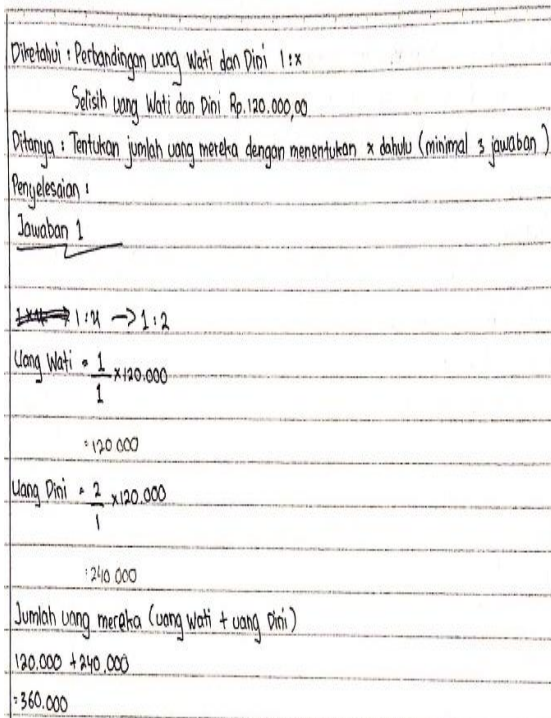 Diketahui : Perbandingan uang Wati dan Dini 1:x
Selisih uang Wati dan Dini Rp.120.000,00
Ditanya : Tentukan jumlah uang mereka dengan menentukan x dahulu (minimal 3 jawaban)
Penyelesaian :
Jawaban 1
1:x -> 1:2
Uang Wati = 1/1 x 120.000
= 120 000
Uang Dini = 2/1 x120.000
= 240 000
Jumlah uang mereka (uang Wati + uang Dini)
120.000 + 240.000
= 360.000